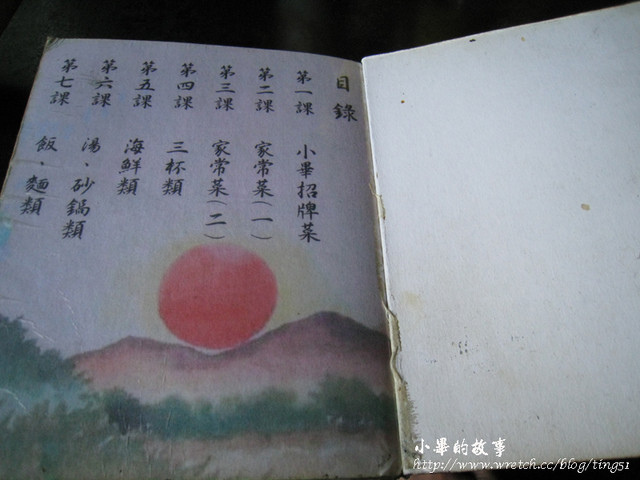 目錄
第一課 小畢招牌菜
第二課 家常菜(一)
第三課 家常菜(二)
第四課 三杯類
第五課 海鮮類
第六課 湯、砂鍋類
第七課 飯、麵類
小畢的故事
http://www.wretch.cc/blog/ting51